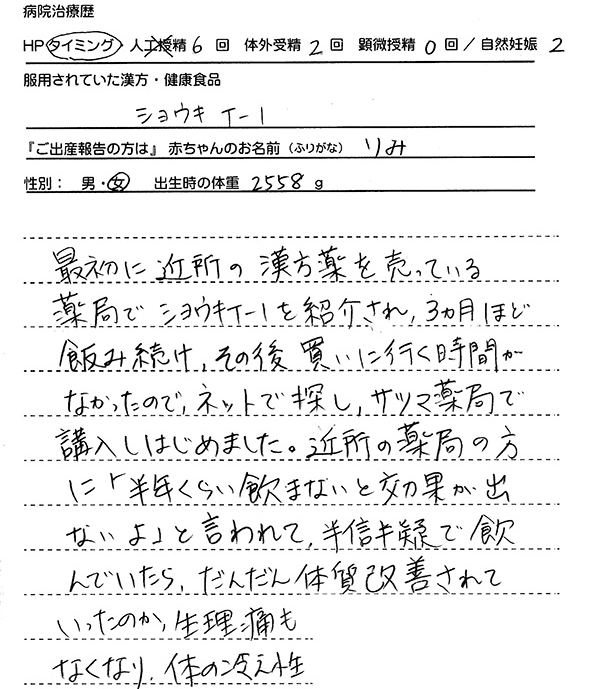 病院治療歴
HP タイミング 人工授精 6 回 体外受精 2 回 顕微授精 0 回 / 自然妊娠 2
服用されていた漢方・健康食品
ショウキT-1
『ご出産報告の方は』 赤ちゃんのお名前 (ふりがな) りみ
性別： 男・女 出生時の体重 2558 g
最初に近所の漢方薬を売っている
薬局でショウキT-1を紹介され, 3ヵ月ほど
飲み続け, その後買いに行く時間が
なかったので, ネットで探し, サツマ薬局で
講入しはじめました。近所の薬局の方
に「半年くらい飲まないと効果が出
ないよ」と言われて, 半信半疑で飲
んでいたら, だんだん体質改善されて
いったのか, 生理痛も
なくなり, 体の冷え性